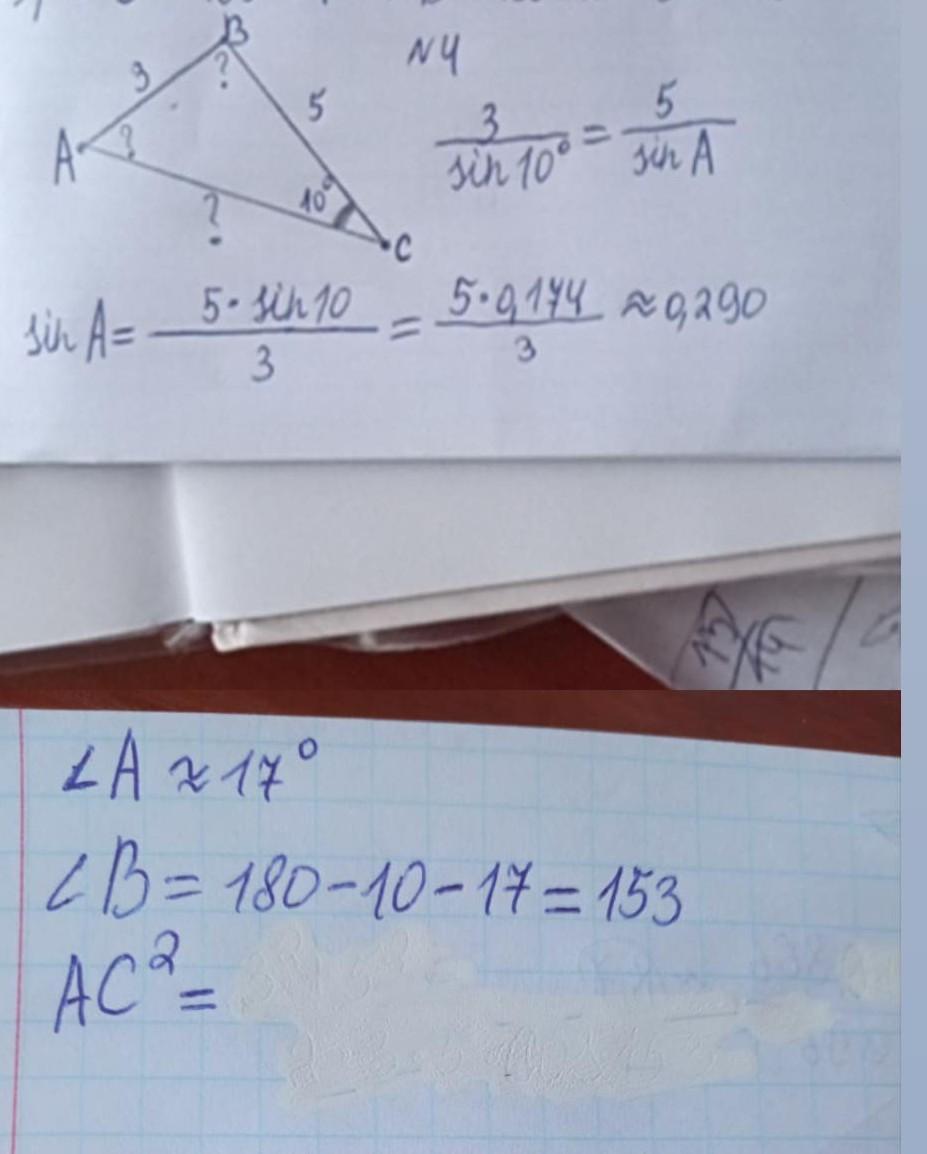 N4
B
3
?
5
A
?
?
10°
C
3/sin10° = 5/sin A
sin A = 5·sin10/3 = 5·0,174/3 ≈ 0,290
∠A ≈ 17°
∠B = 180-10-17 = 153
AC² =